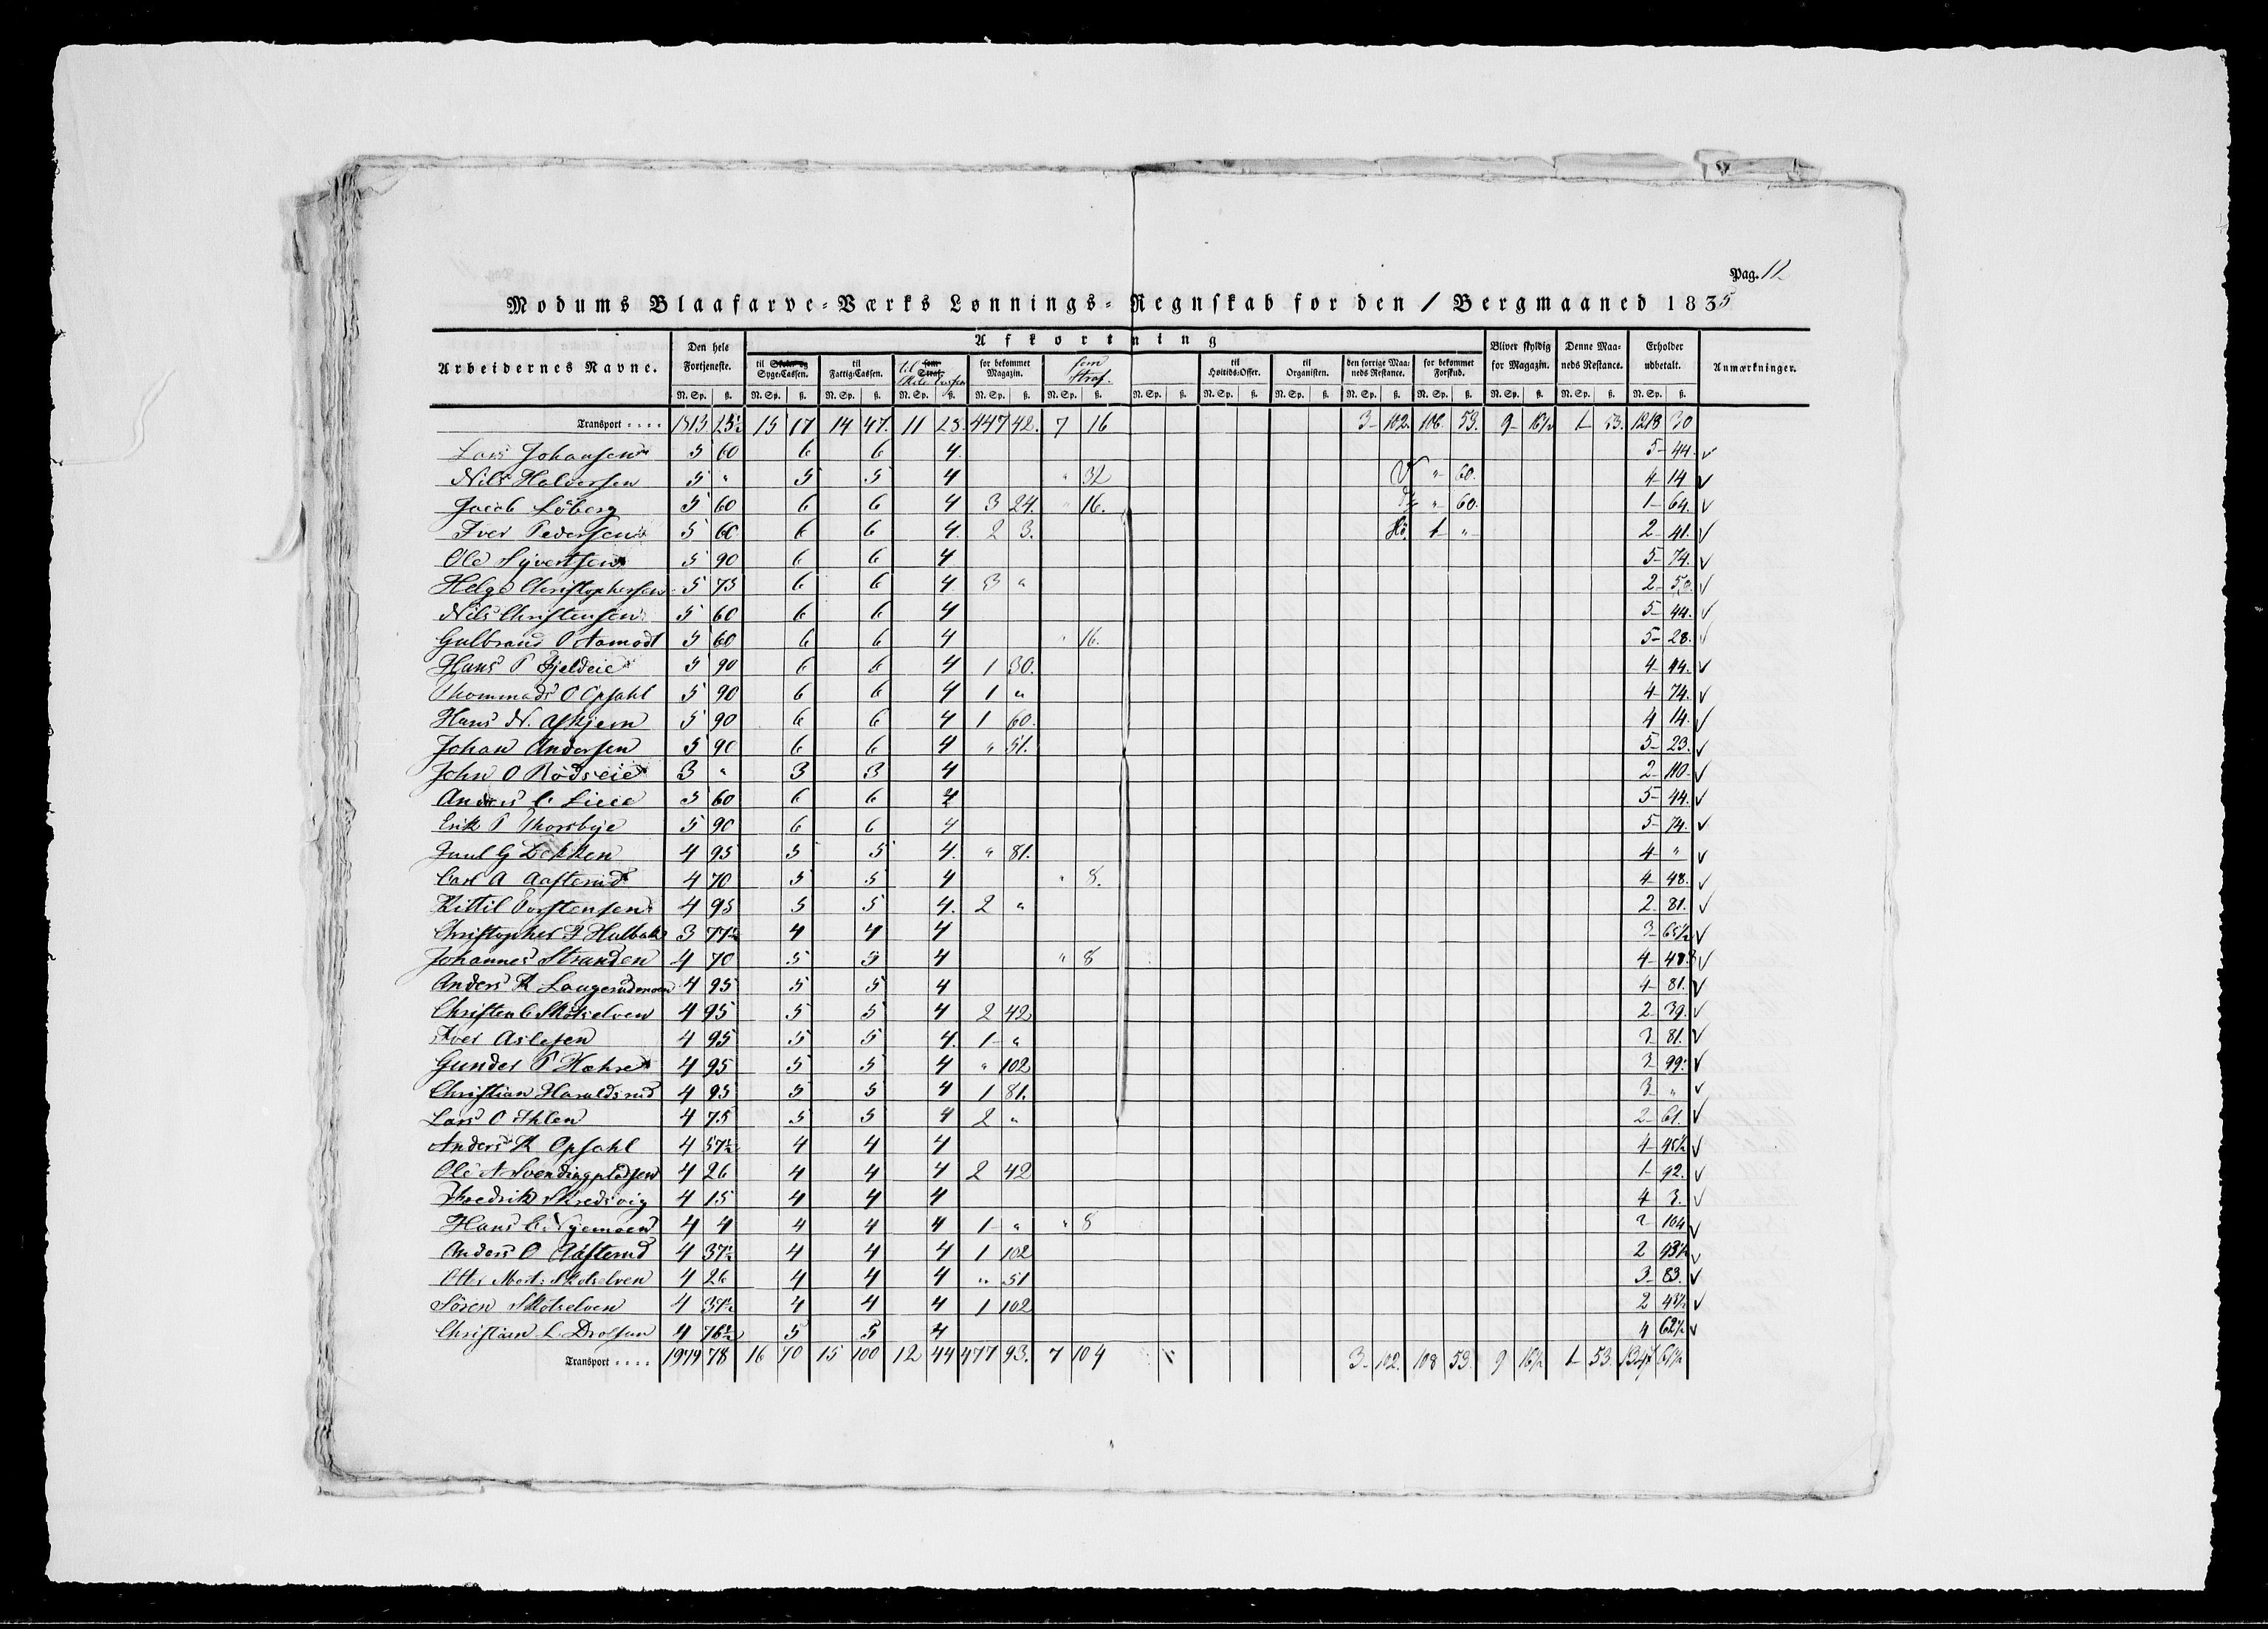 Pag. 12
Modums Blaafarve-Værks Lønnings-Regnskab for den 1 Bergmaaned 1835
Arbeidernes Navne. Den hele Fortjeneste. Afkortning Bliver skyldig for Magazin. Denne Maaneds Restance. Erholder udbetalt. Anmærkninger.
til Skole og Syge-Cassen. til Fattig-Cassen. til Skole Cassen som Straf. for bekommet Magazin. som Straf. til Høitids-Offer. til Organisten. den forrige Maaneds Restance. for bekommet Forskud.
N. Sp. ß. N. Sp. ß. N. Sp. ß. N. Sp. ß. N. Sp. ß. N. Sp. ß. N. Sp. ß. N. Sp. ß. N. Sp. ß. N. Sp. ß. N. Sp. ß. N. Sp. ß. N. Sp. ß. N. Sp. ß.
Transport .... 15 17 14 47. 11 23. 447 42. 7 16 3- 102. 106. 53. 9- 16½ 1- 53. 1218 30
Lars Johansen 5 60 6 6 4. 5- 44. ✓
Nils Halvorsen 5 " 5 5 4 " 32 " 60. 4- 14 ✓
Jacob Löberg 5 60 6 6 4 3 24. " 16. " 60. 1- 64. ✓
Iver Pedersen 5 60 6 6 4. 2 3. 1 " 2- 41. ✓
Ole Syvertsen 5 90 6 6 4 5- 74. ✓
Helge Christophersen 5 75 6 6 4. 3 " 2- 59. ✓
Nils Christensen 5 60 6 6 4 5- 44. ✓
Gulbrand O Aamodt 5 60 6 6 4 " 16. 5- 28. ✓
Hans P Fjeldeie 5 90 6 6 4 1 30. 4- 44. ✓
Thommads O Opsahl 5 90 6 6 4 1 " 4- 74. ✓
Hans N. Askjern 5 90 6 6 4 1 60. 4 14. ✓
Johan Andersen 5 90 6 6 4 " 51. 5- 23. ✓
John O Rödseie 3 " 3 3 4 2- 110- ✓
Anders C. Lieie 5 60 6 6 4 5- 44. ✓
Erik P Thorsbye 5 90 6 6 4 5- 74. ✓
Paul G Bekken 4 95 5 5 4. " 81. 4- " ✓
Carl A Aasterud 4 70 5 5 4 " 8. 4- 48. ✓
Kittil Torstensen 4 95 5 5 4. 2 " 2. 81. ✓
Christopher P Hulbak 3 77½ 4 4 4 3- 65½ ✓
Johannes Stranden 4 70 5 5 4 " 8 4- 48. ✓
Anders K Langerudmoen 4 95 5 5 4 4- 81. ✓
Christen C Skotselven 4 95 5 5 4 2 42 2- 39. ✓
Iver Aslesen 4 95 5 5 4. 1- " 3- 81. ✓
Gunder P Hæhre 4 95 5 5 4 " 102 3- 99. ✓
Christian Haraldsrud 4 95 5 5 4 1 81. 3- " ✓
Lars O Ihlen 4 75 5 5 4 2 " 2- 61. ✓
Anders K Opsahl 4 57½ 4 4 4 4- 45½ ✓
Ole A Svendingpladsen 4 26 4 4 4 2 42 1- 92. ✓
Fredrik Skredsvig 4 15 4 4 4 4 3. ✓
Hans C Nyemoen 4 4 4 4 4 1- " " 8 2- 104 ✓
Anders O Aasterud 4 37½ 4 4 4 1 102 2 43½ ✓
Otter Mort: Skotselven 4 26 4 4 4 " 51 3- 83. ✓
Sören Skotselven 4 37½ 4 4 4 1 102 2 43½ ✓
Christian L. Drolsum 4 76½ 5 5 4 4 62½ ✓
Transport .... 1979 78 16 70 15 100 12 44 477 93. 7 104 3- 102. 108 53. 9 16½ 1- 53. 1347 61½